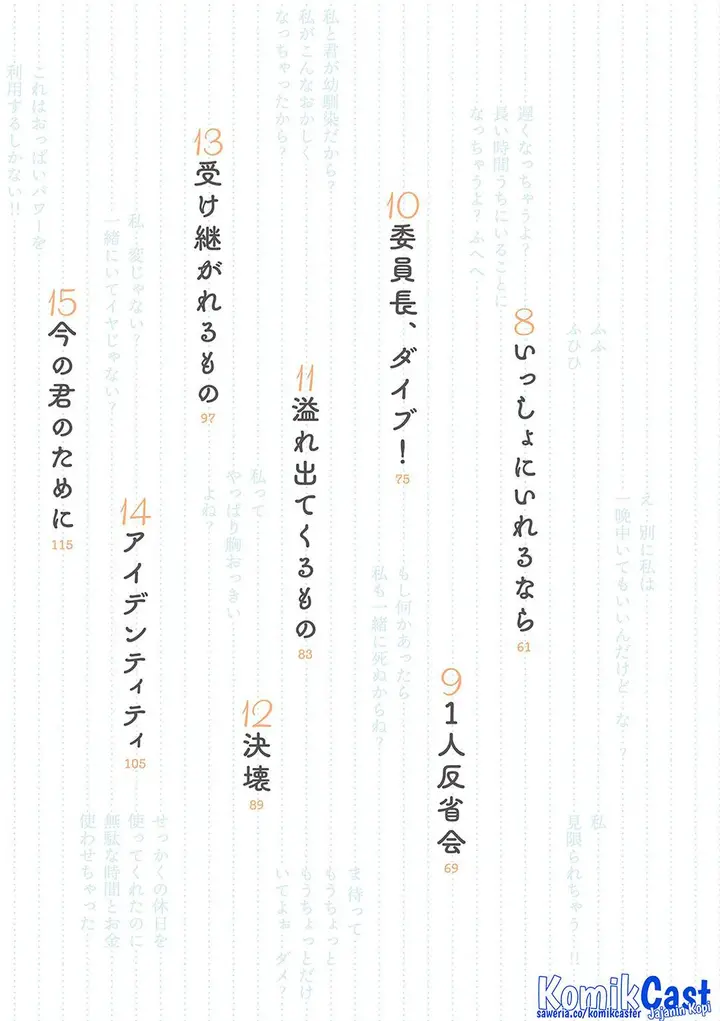 8
いっしょにいれるなら
61
9
1人反省会
69
10
委員長、ダイブ!
75
11
溢れ出てくるもの
83
12
決壊
89
13
受け継がれるもの
97
14
アイデンティティ
105
15
今の君のために
115
え 別に私は
一晩中いてもいいんだけど な ?
ふふ
ふひひ
私
見限られちゃう !!
遅くなっちゃうよ?
長い時間うちにいることに
なっちゃうよ? ふへへ
もし何かあったら
私も一緒に死ぬからね?
私と君が幼馴染だから?
私がこんなおかしく
なっちゃったから?
ま 待って
もうちょっと
もうちょっとだけ
いてよぉ ダメ
私って
やっぱり胸おっきい
よね?
私 変じゃない?
一緒にいてイヤじゃない?
せっかくの休日を
使ってくれたのに
無駄な時間とお金
使わせちゃった
これはおっぱいパワーを
利用するしかない!!
KomikCast
saweria.co/komikcaster
Jajanin Kopi